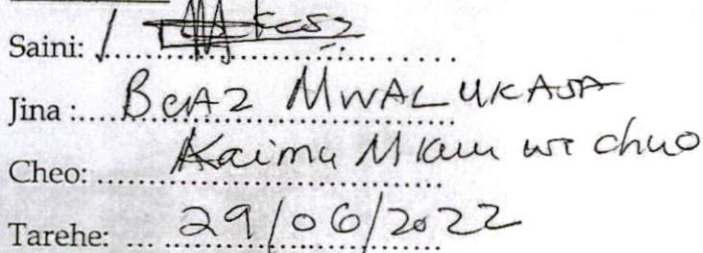 Saini:
Jina : BOAZ MWALUKASA
Cheo: Kaimu Mkuu wa chuo
Tarehe: 29/06/2022